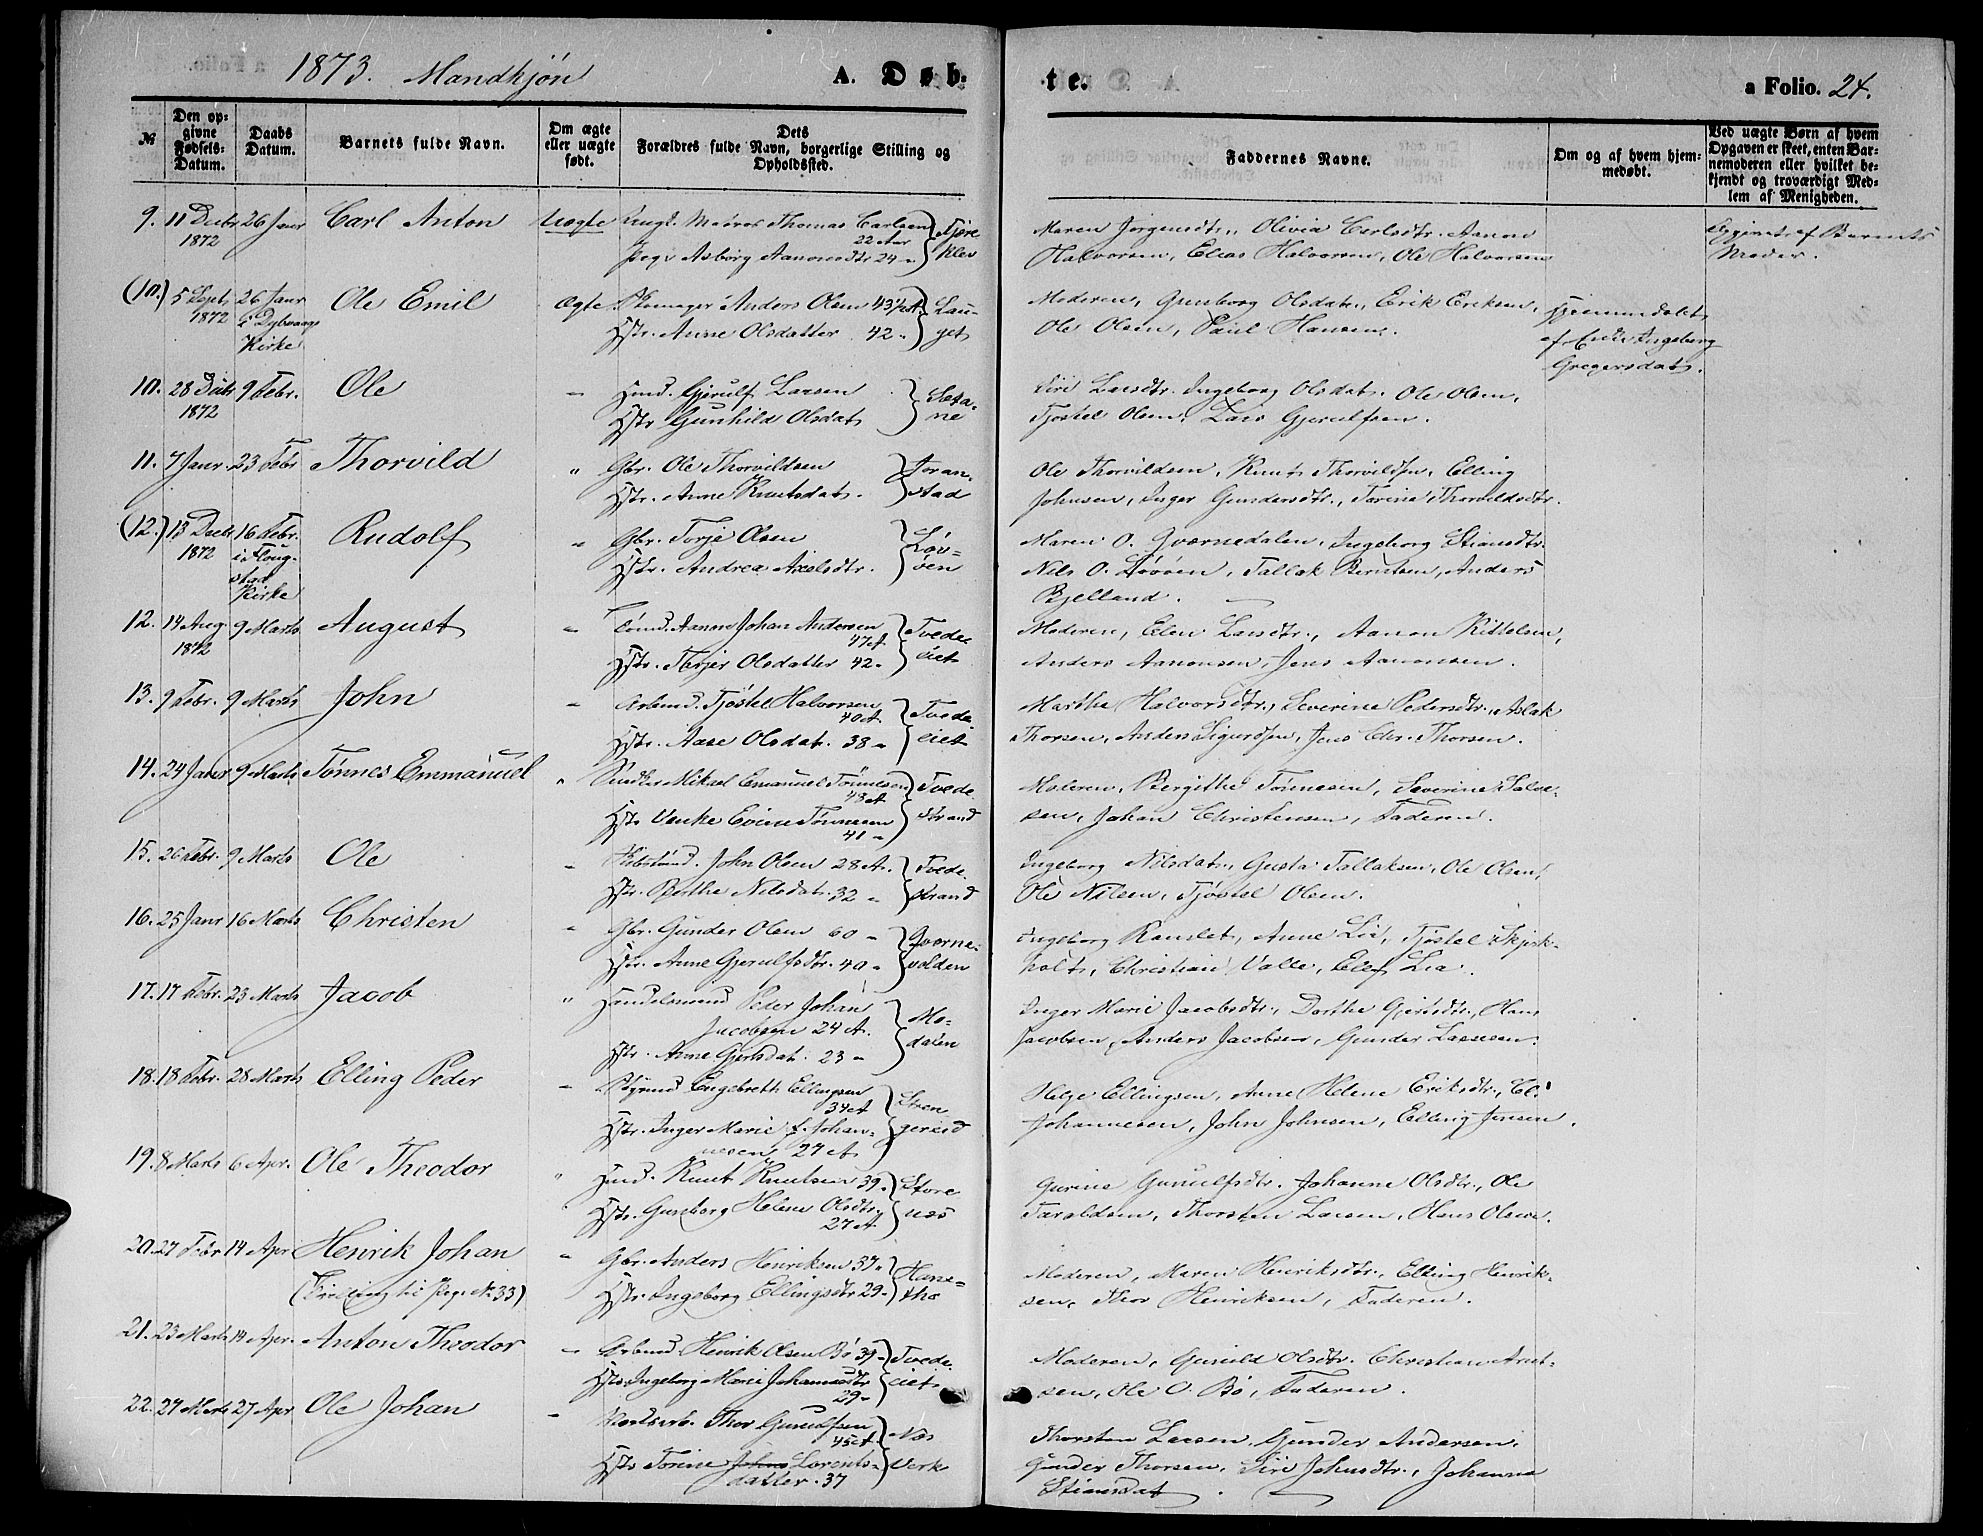 1873. Mandkjøn
A. Døb-
te.
a Folio. 24.
№
Den op-
givne
Fødsels-
Datum.
Daabs
Datum.
Barnets fulde Navn.
Om ægte
eller uægte
født.
Dets
Forældres fulde Navn, borgerlige Stilling og
Opholdssted.
Faddernes Navne.
Om og af hvem hjem-
medøbt.
Ved uægte Børn af hvem
Opgaven er skeet, enten Bar-
nemoderen eller hvilket be-
kjendt og troværdigt Med-
lem af Menigheden.
9. 11 Decbr 26 Janr Carl Anton Uægte Ungk. Thomas Carlsen
1872 22 Aar
Pige Asborg Aanonsdtr 24 "
Maren Jørgensdtr., Olivia Carlsdtr. Aanon
Halvorsen, Elias Halvorsen, Ole Halvorsen
Opgivet af Barnets
Moder.
(10.) 5 Sept. 26 Janr Ole Emil Ægte Skomager Anders Olsen 43
1872 i Dybvaags
Kirke
Hstr. Anne Olsdatter 42 "
Lau-
get
Moderen, Gunborg Olsdat., Erik Eriksen,
Ole Olsen, Paul Hansen.
Hjemmedøbt
af Enke Ingeborg
Gregersdat.
10. 28 Decbr 9 Febr. Ole " Hmd. Gjerulf Larsen
1872
Hstr Gunhild Olsdat
Siri Larsdtr. Ingeborg Olsdat. Ole Olsen,
Tjøstel Olsen, Lars Gjerulfsen.
11. 7 Janr. 23 Febr Thorvild " Gbr. Ole Thorvildsen
Hstr. Anne Knutsdat.
Goran-
stad
Ole Thorvildsen, Knut Thorvildsen, Elling
Johnsen, Inger Gundersdtr., Torine Thorvildsdtr.
(12.) 13 Decbr 16 Febr. Rudolf " Gbr. Torje Olsen
1872
Kirke
Hstr. Andrea Axelsdtr.
Løv-
øen
Maren O. Qvernedalen, Ingeborg Stiansdtr.
Nils O. Løvøen, Tallak Berntsen, Anders
Bjelland.
12. 14 Aug. 9 Marts August " Aanon Johan Andersen
1872 47 A
Hstr. Terjer Olsdatter 42 "
Tvede-
eiet
Moderen, Elen Larsdtr., Aanon Kittelsen,
Anders Aanonsen, Jens Aanonsen.
13. 9 Febr. 9 Marts John " Arbmd. Tjøstel Halvorsen
40 A.
Hstr. Aase Olsdat. 38 "
Tvede-
eiet
Martha Halvorsdtr., Severine Pedersdtr. Aslak
Thorsen, Anders Sigurdsen, Jens Chr. Thorsen.
14. 24 Janr 9 Marts Tønnes Emmanuel " Snedker Mikael Emanuel Tønnesen
48 A
Hstr Venke Tønnesen
41 "
Tvede-
strand
Moderen, Bergithe Tønnesen, Severine Salve-
sen, Johan Christensen, Faderen.
15. 26 Febr. 9 Marts Ole " John Olsen 28 A.
Hstr. Berthe Nilsdat. 32 "
Tvede-
strand
Ingeborg Nilsdat., Gusta Tallaksen, Ole Olsen,
Ole Nilsen, Tjøstel Olsen.
16. 25 Janr 16 Marts Christen " Gbr. Gunder Olsen 60 "
Hstr. Anne Gjerulfsdtr. 40 "
Qverne-
volden
Ingeborg Ranslet, Anne Lia, Tjøstel Skjerk-
holt, Christian Valle, Ellef Lia.
17. 17 Febr. 23 Marts Jacob " Handelsmand Peder Johan
Jacobsen 24 A.
Hstr. Anne Gjertsdat. 23 "
Mo-
dalen
Inger Marie Jacobsdtr., Dorthe Gjertsdtr., Hans
Jacobsen, Anders Jacobsen, Gunder Larssen.
18. 18 Febr. 28 Marts Elling Peder " Styrmd Engebreth Ellingsen
34 A
Hstr. Inger Marie f. Johan-
nesen 27 A
Sten-
gereid
Helje Ellingsen, Anne Helene Eriksdtr., El.
Johannesen, John Johnsen, Elling Jensen.
19. 8 Marts 6 Apr. Ole Theodor " Hmd. Knut Knutsen 39 "
Hstr. Gunborg Helene Olsdtr.
27 A
Store-
næs
Gurine Gunulfsdtr. Johanne Olsdtr., Ole
Taraldsen, Thorsten Larsen, Hans Olsen.
20. 27 Febr 14 Apr Henrik Johan " Gbr. Anders Henriksen 37 "
(Tvilling til Pige № 33)
Hstr. Ingeborg Ellingsdtr 29 "
Moderen, Maren Henriksdtr., Elling Henrik-
sen, Thor Henriksen, Faderen.
21. 23 Marts 14 Apr. Anton Theodor " Arbmd. Henrik Olsen Bø 39 "
Hstr Ingeborg Marie Johannesdtr
29 "
Tvede-
eiet
Moderen, Gunild Olsdtr. Christian Arnt-
sen, Ole O. Bø, Faderen.
22. 27 Marts 27 Apr Ole Johan " Thor Gunulfsen
45 A
Hstr Torine Lorents-
datter. 37
Næs
Verk
Thorsten Larsen, Gunder Andersen,
Gunder Thorsen, Siri Johnsdtr., Johanna
Stiansdat.